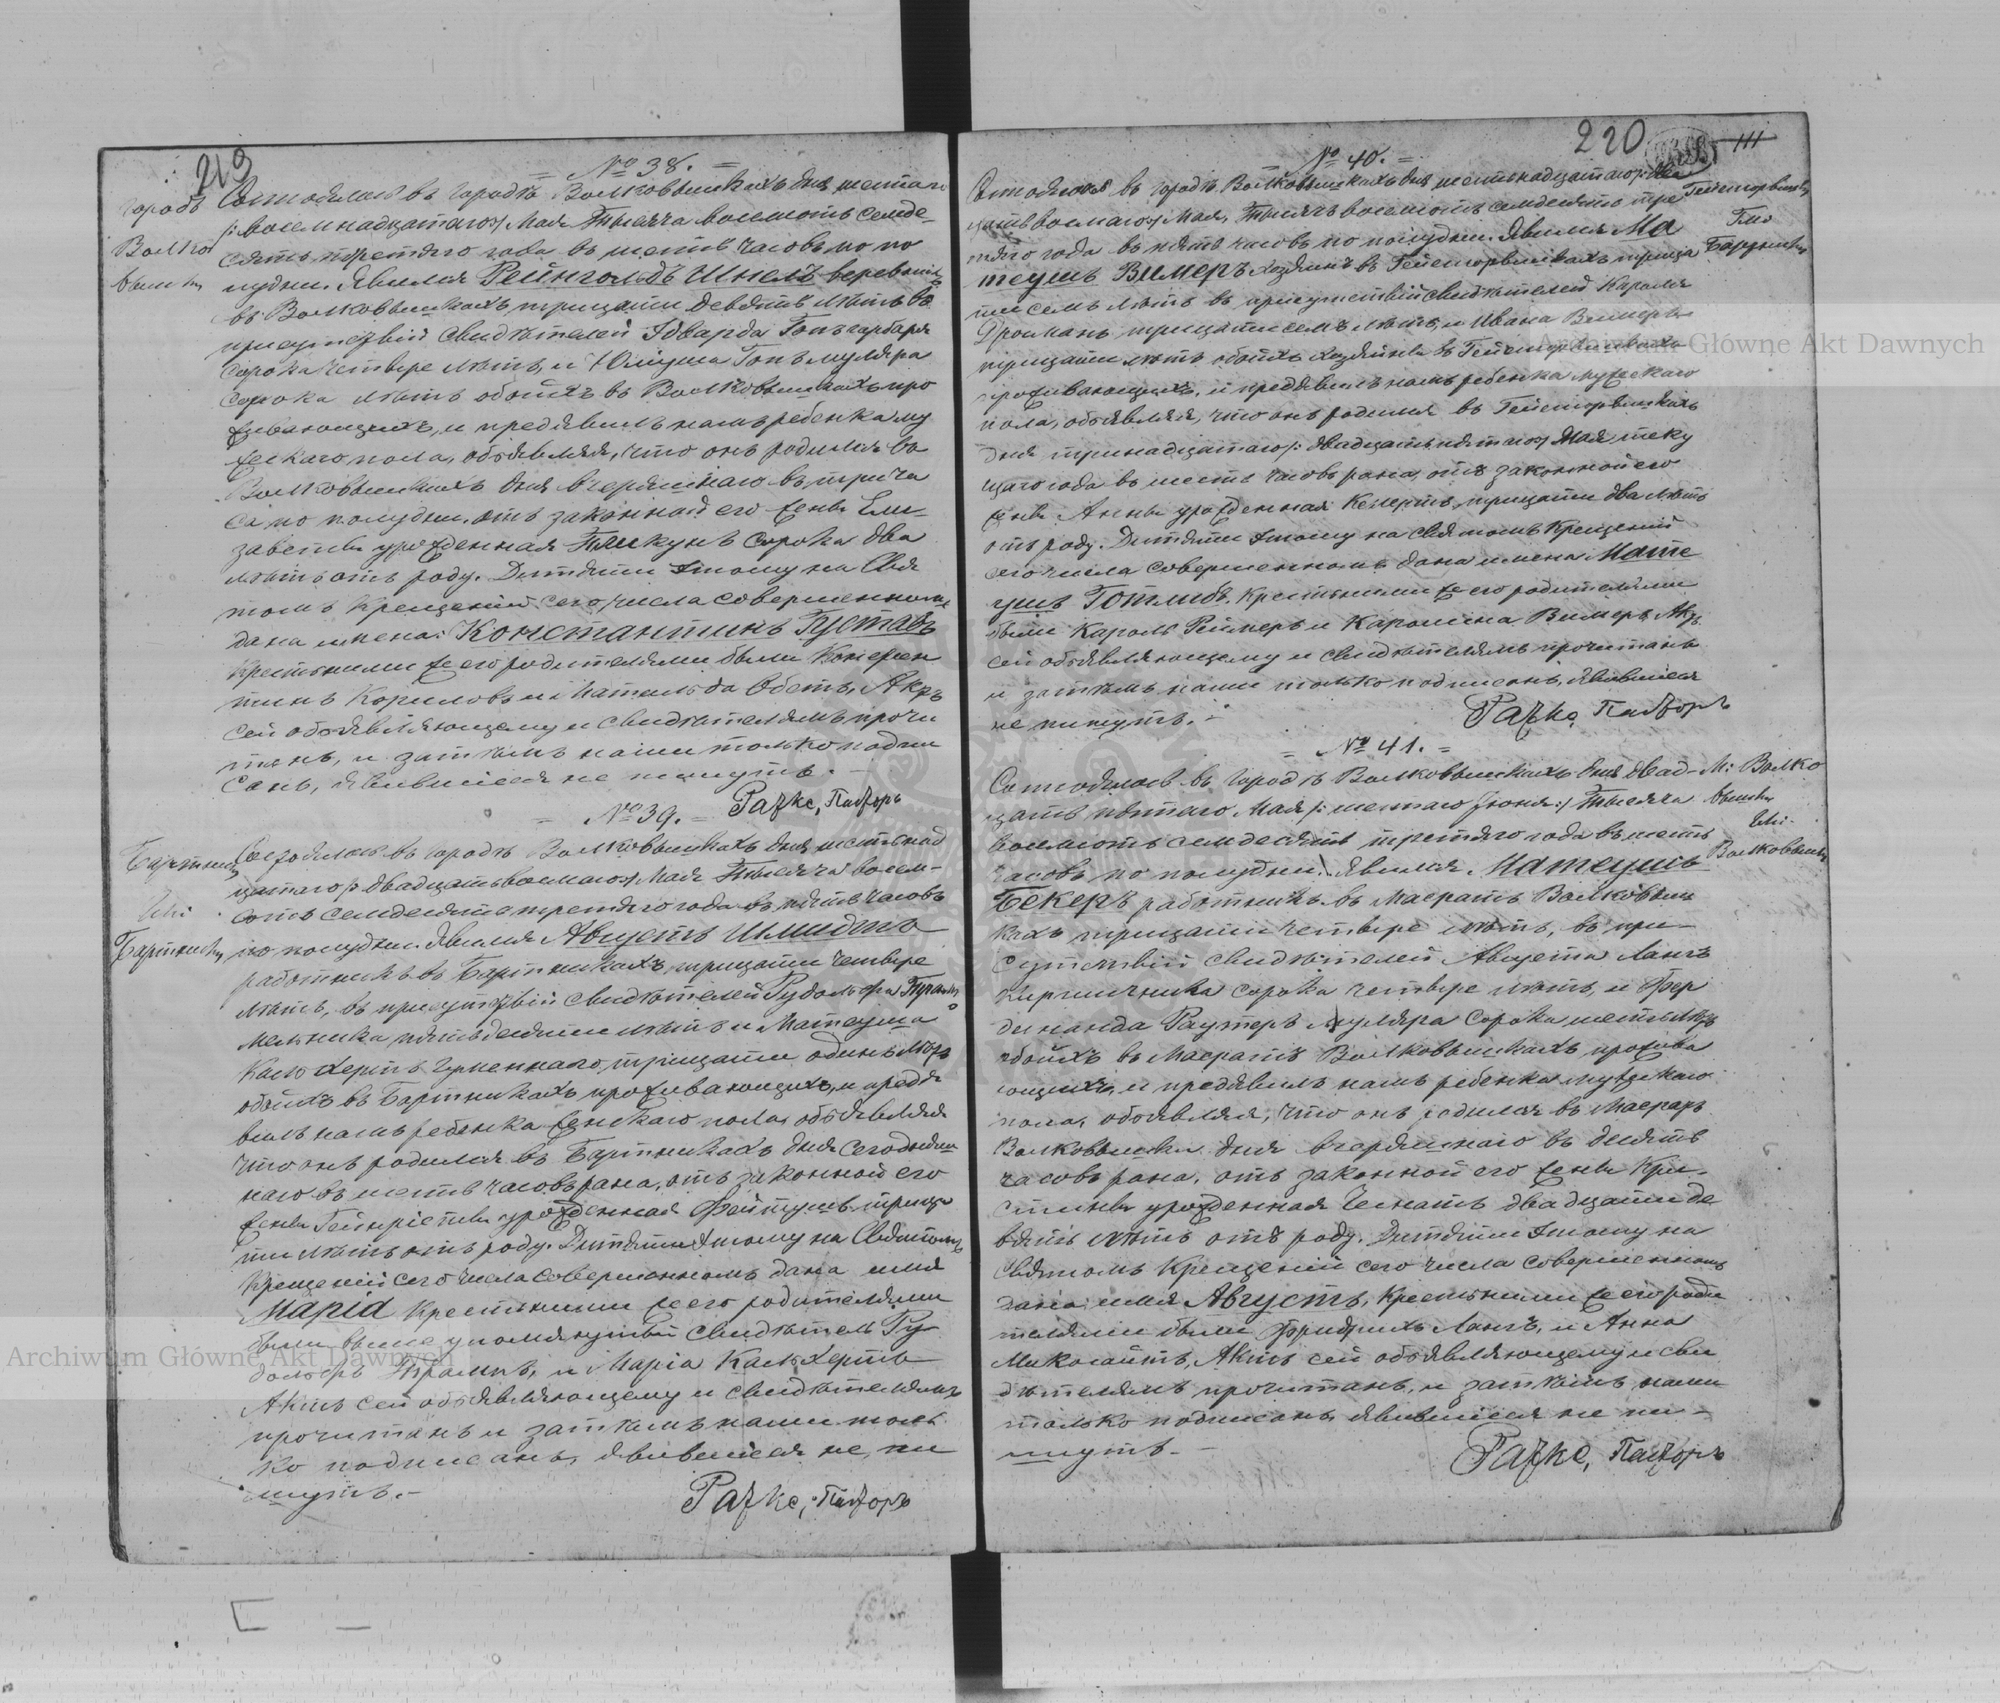 219
№ 38.
городъ
Волко
вышки
Состоялось въ городѣ Волковышкахъ дня шестаго
/: восемнадцатаго:/ Мая Тысяча восемсотъ семде-
сятъ третяго года въ шесть часовъ по по
лудни. Явился Рейнгольдъ Шнель
въ Волковышкахъ тридцати девять лѣтъ въ
присутствіи свидѣтелей Эдварда Гопъ гарбаря
сорока четвере лѣтъ, и Юліуша Гопъ муляра
сорока лѣтъ обоихъ въ Волковышкахъ про
живающихъ, и предявилъ намъ ребенка му
жескаго пола, объявляя, что онъ родился въ
Волковышкахъ дня вчерашнаго въ три ча
са по полудни, отъ законной его жены Ели-
заветы урожденная Пликунъ сорока два
лѣтъ отъ роду. Дитяти этому на Свя
томъ Крещеніи сего числа совершенномъ
дана имена: Константинъ Густавъ
Крестными же его родителями были Констан
тинъ Кориловъ и Матильда Обетъ, Актъ
сей объявляющему и свидѣтелямъ прочи
танъ, и затѣмъ нами только подпи
санъ, явившіеся не пишутъ.
Радке, Пасторъ
№ 39.
Бартники
Бартники
Состоялось въ городѣ Волковышкахъ дня шестьнад
цатаго /: двадцать восмаго:/ Мая Тысяча восем-
сотъ семдесятъ третяго года въ пять часовъ
по полудни. Явился Августъ Шмидтъ
работникъ въ Бартникахъ, тридцати четвере
лѣтъ, въ присутствіи свидѣтелей Рудольфа
мельника, пятьдесяти лѣтъ и Матеуша
Кальхертъ гуменнаго, тридцати одинъ лѣтъ
обоихъ въ Бартникахъ проживающихъ, и предя
вилъ намъ ребенка женскаго пола, объявляя
что онъ родился въ Бартникахъ дня сегодняш
наго въ шесть часовъ рана, отъ законной его
жены Генріеты урожденная Фейтушъ тридца
ти лѣтъ отъ роду. Дитяти этому на Святомъ
Крещеніи сего числа совершенномъ дана имя
Марія Крестными же его родителями
были выше упомянутый свидѣтель Ру
дольфъ и Марія Кальхертъ
Актъ сей объявляющему и свидѣтелямъ
прочитанъ и затѣмъ нами толь
ко подписанъ, явившіеся не пи
шутъ.-
Радке, Пасторъ
220
111
№ 40.
Состоялось въ городѣ Волковышкахъ дня шестьнадцатаго /: два
цать восмаго:/ Мая, Тысяча восемсотъ семдесятъ тре
тяго года въ пять часовъ по полудни. Явился Ма
теушъ Вимеръ хозяинъ въ тридца
ти семь лѣтъ въ присутствіи свидѣтелей Кароля
Дромакъ тридцати семь лѣтъ, и Ивана Вимеръ
тридцати лѣтъ обоихъ хозяевъ въ
проживающихъ, и предявилъ намъ ребенка мужескаго
пола, объявляя, что онъ родился въ
дня тринадцатаго /: двадцать пятаго:/ Мая теку
щаго года въ шесть часовъ рана, отъ законной его
жены Анны урожденная Келертъ, тридцати два лѣтъ
отъ роду. Дитяти этому на Святомъ Крещеніи
сего числа совершенномъ дана имена Мате
ушъ Готлибъ. Крестными же его родителями
были Кароль Реймеръ и Каролина Вимеръ, Актъ
сей объявляющему и свидѣтелямъ прочитанъ
и затѣмъ нами только подписанъ, явившіеся
не пишутъ.
Радке, Пасторъ
№ 41.
М: Волко
вышки
Волковышки
Состоялось въ городѣ Волковышкахъ дня двад-
цать пятаго Мая /: шестаго Іюня:/ Тысяча
восемсотъ семдесятъ третяго года въ шесть
часовъ по полудни. Явился Матеушъ
Бекеръ работникъ въ Маератѣ Волковыш
кахъ тридцати четвере лѣтъ, въ при-
сутствіи свидѣтелей Августа Лангъ
кирпичника сорока четвере лѣтъ, и Фер
динанда Раутеръ муляра сорока шесть лѣтъ
обоихъ въ Маератѣ Волковышкахъ прожива
ющихъ, и предявилъ намъ ребенка мужескаго
пола, объявляя, что онъ родился въ Маератѣ
Волковышки дня вчерашнаго въ десять
часовъ рана, отъ законной его жены Кри-
стины урожденная двадцати де
вять лѣтъ отъ роду. Дитяти этому на
Святомъ Крещеніи сего числа совершенномъ
дана имя Августъ, Крестными же его роди
телями были Фридрихъ Лангъ, и Анна
Миколайтъ, Актъ сей объявляющему и сви
дѣтелямъ прочитанъ, и затѣмъ нами
только подписанъ, явившіеся не пи-
шутъ.-
Радке, Пасторъ
Archiwum Główne Akt Dawnych
Archiwum Główne Akt Dawnych